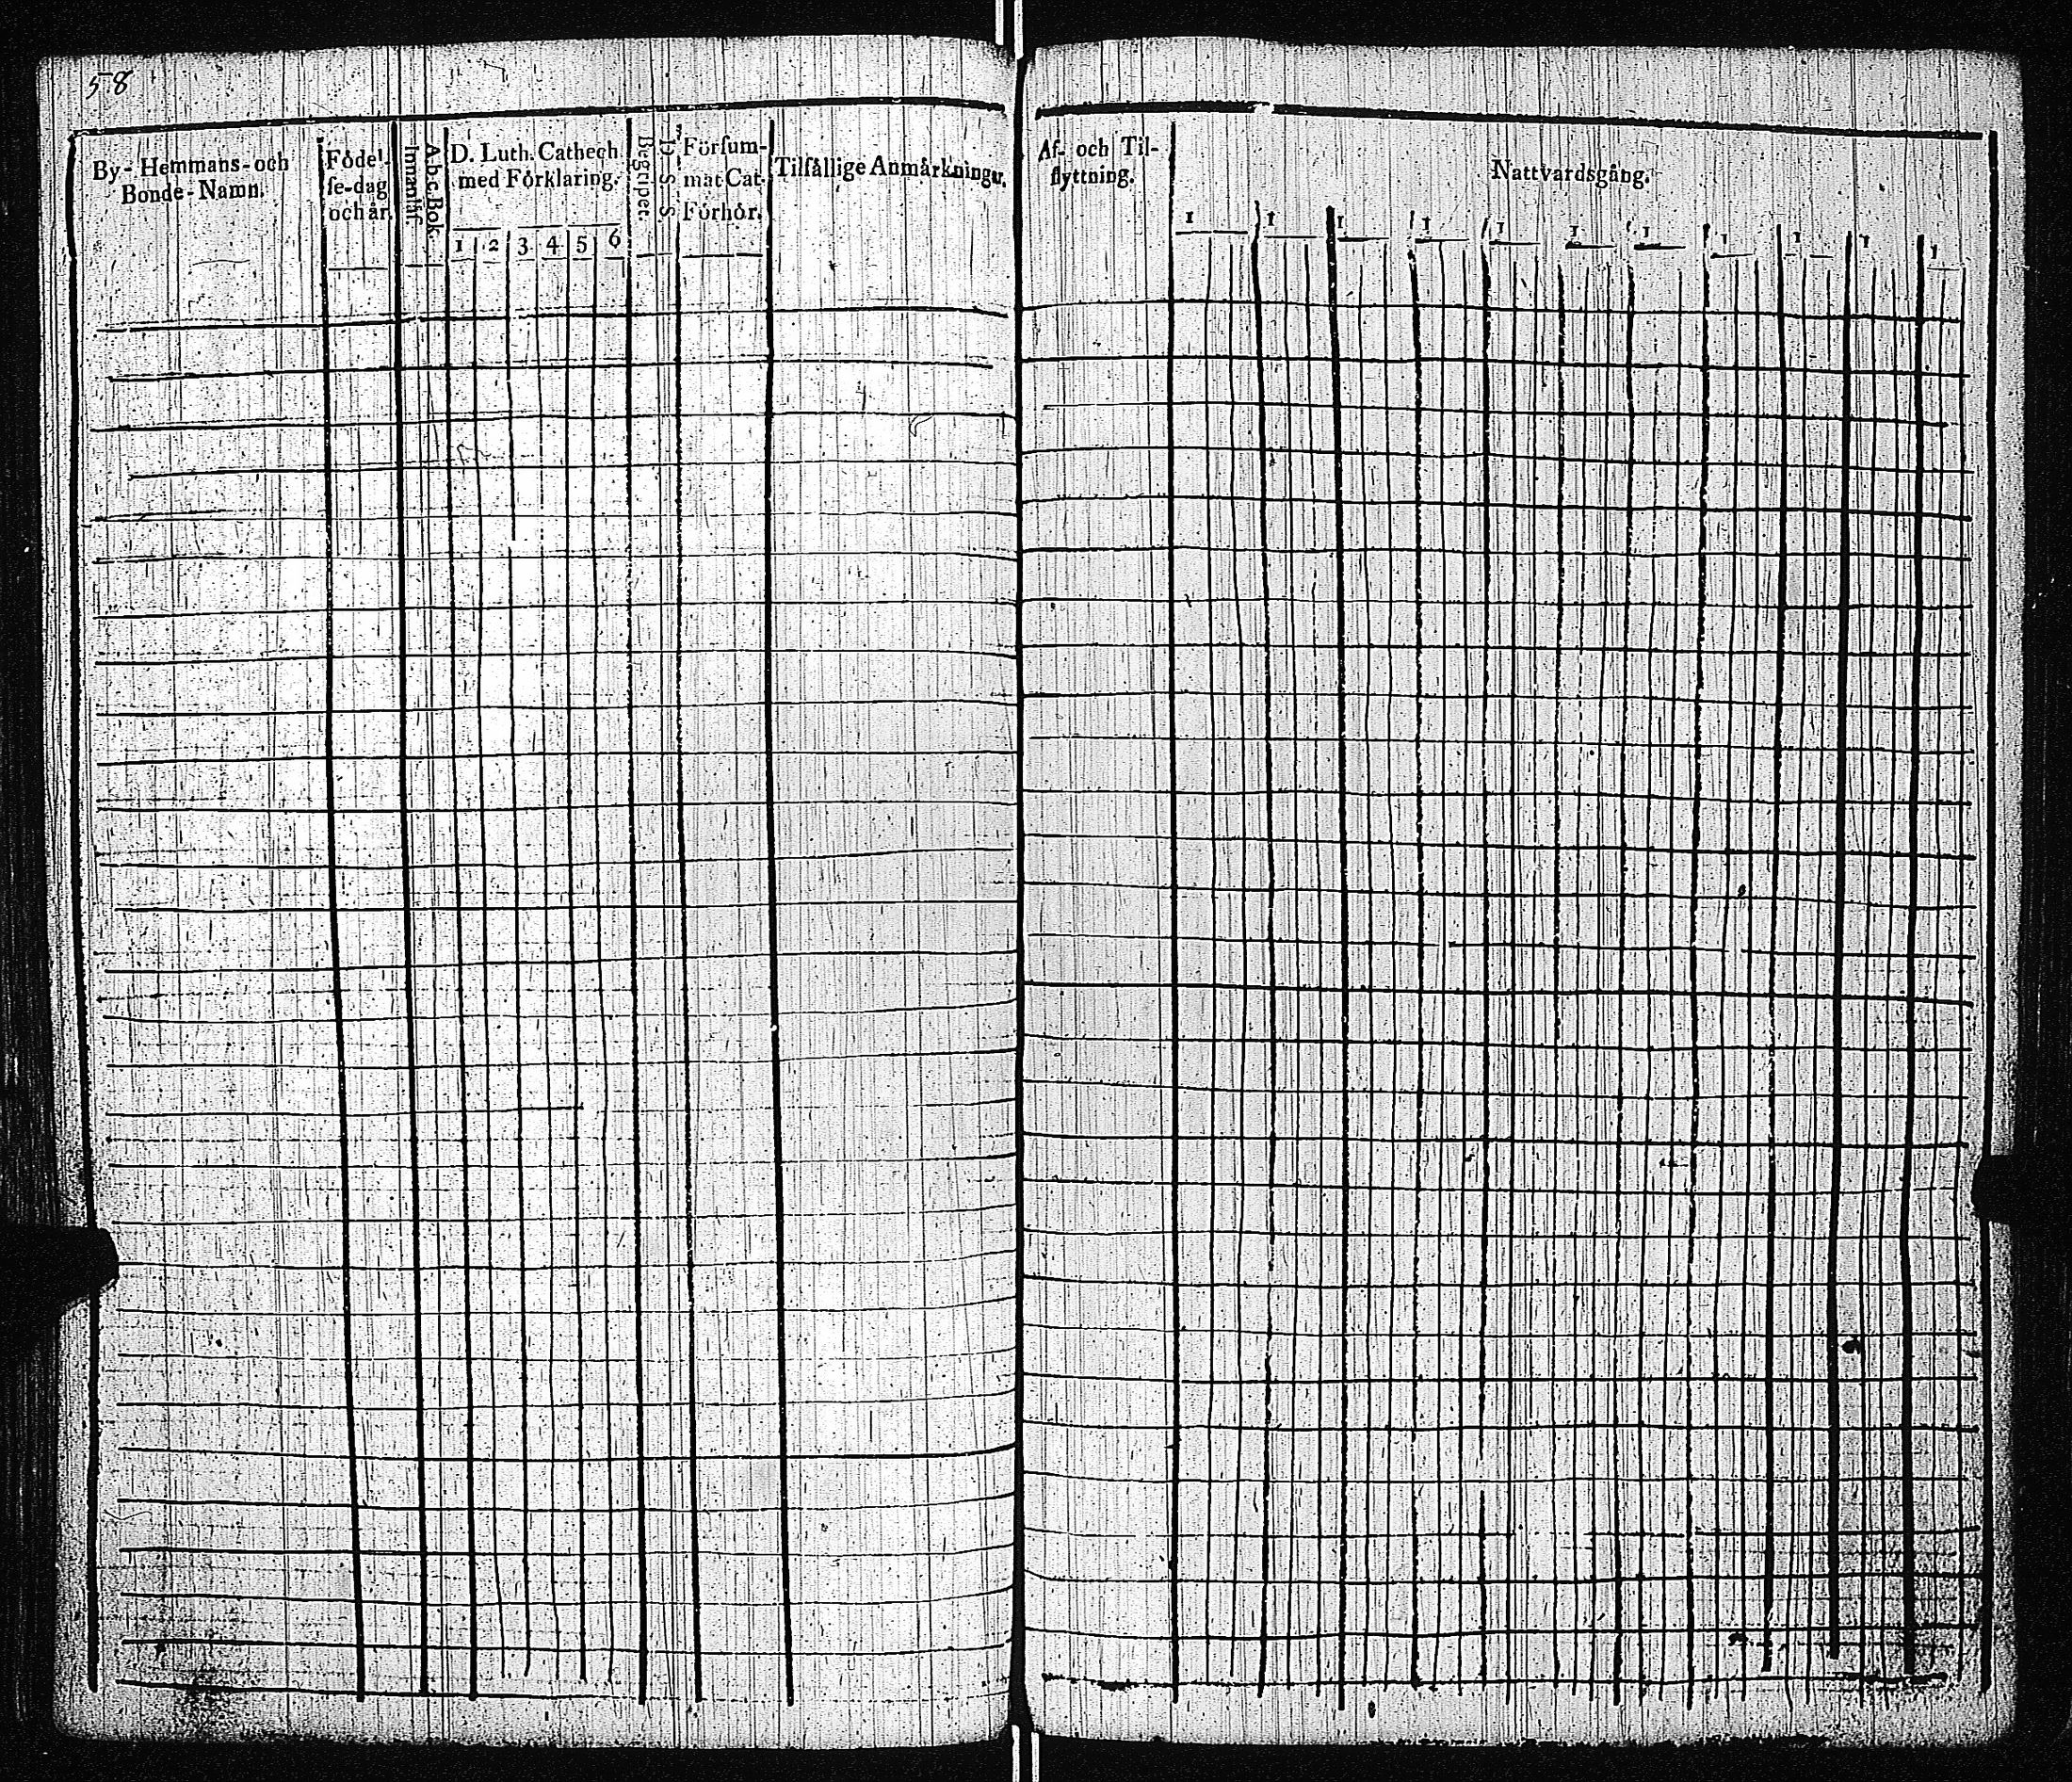 58
By- Hemmans- och
Bonde-Namn.
Födel-
ſe-dag
och år.
A.b.c.Bok.
Innanläſ.
D. Luth. Cathech.
med Förklaring.
1 2 3 4 5 6
Begriper.
D. S. S.
Förſum-
mat Cat.
Förhör.
Tilfällige Anmärkningr.
Af- och Til-
flyttning.
Nattvardsgång.
1 1 1 1 1 1 1 1 1 1 1